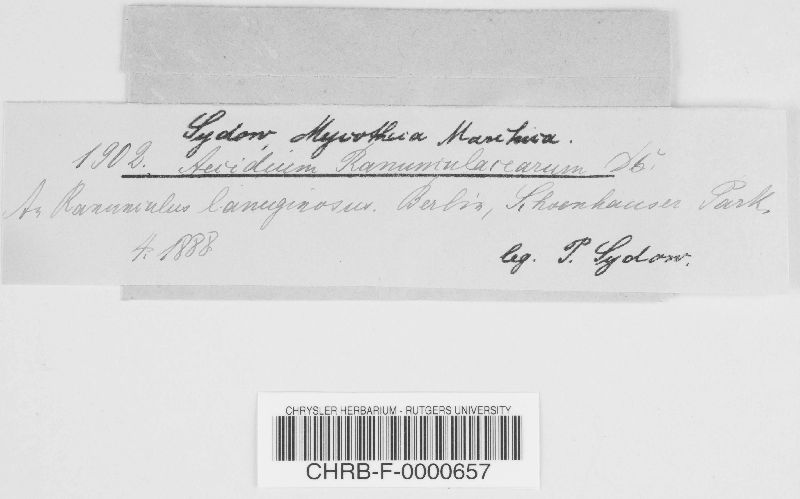 Sydow, Mycotheca Marchica.
1902. Aecidium Ranunculacearum DC.
An Ranunculus lanuginosus. Berlin, Schoenhauser Park,
4. 1888
leg. P. Sydow.
CHRYSLER HERBARIUM - RUTGERS UNIVERSITY
CHRB-F-0000657